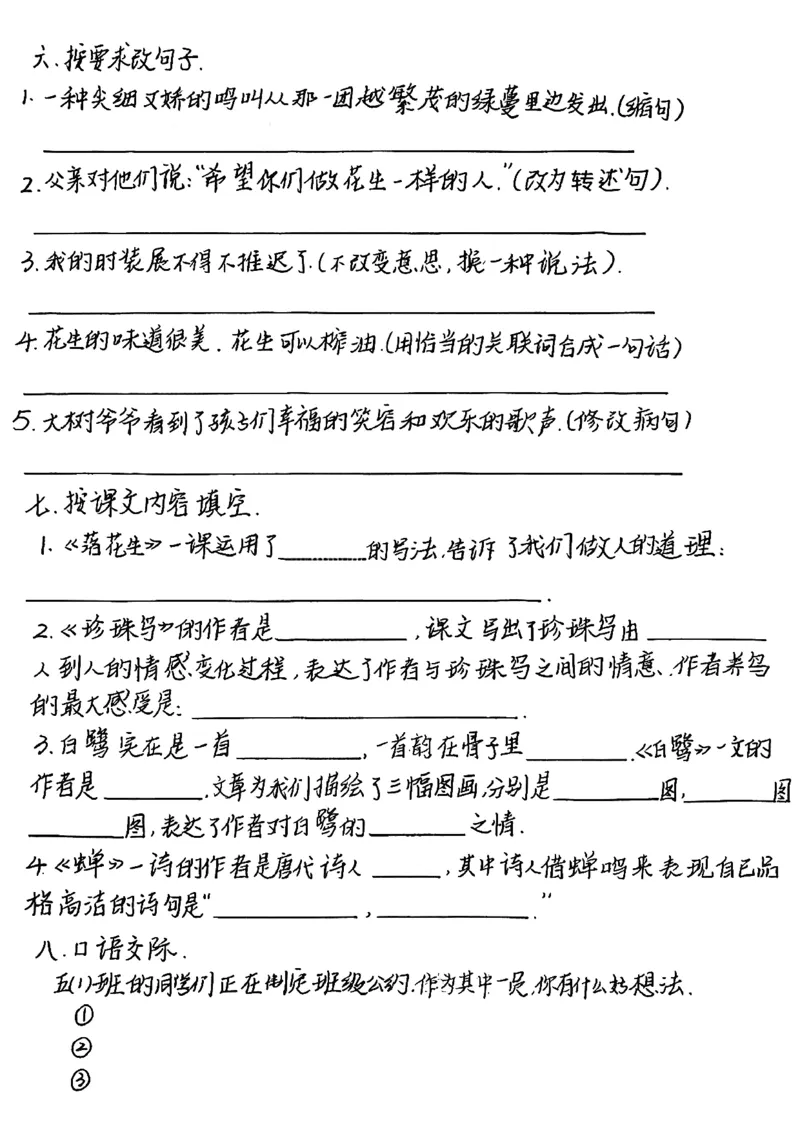 六.按要求改句子.
1.一种尖细又娇的鸣叫从那一团越繁茂的绿蔓里边发出.(缩句)
2.父亲对他们说:“希望你们做花生一样的人.”(改为转述句).
3.我的时装展不得不推迟了.(不改变意思,换一种说法).
4.花生的味道很美.花生可以榨油.(用恰当的关联词合成一句话)
5.大树爷爷看到了孩子们幸福的笑容和欢乐的歌声.(修改病句)
七.按课文内容填空.
1.《落花生》一课运用了______的写法,告诉了我们做人的道理:
______.
2.《珍珠鸟》的作者是______,课文写出了珍珠鸟由______
人到人的情感变化过程,表达了作者与珍珠鸟之间的情意、作者养鸟
的最大感受是:______.
3.白鹭实在是一首______,一首韵在骨子里______.《白鹭》一文的
作者是______,文章为我们描绘了三幅图画,分别是______图,______图
______图,表达了作者对白鹭的______之情.
4.《蝉》一诗的作者是唐代诗人______,其中诗人借蝉鸣来表现自己品
格高洁的诗句是“______,______.”
八.口语交际.
五(1)班的同学们正在制定班级公约.作为其中一员,你有什么好想法.
①
②
③